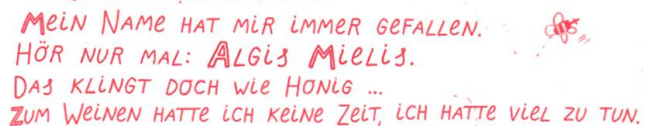 MEIN NAME HAT MIR IMMER GEFALLEN.
HÖR NUR MAL: ALGIS MIELIS.
DAS KLINGT DOCH WIE HONIG ...
ZUM WEINEN HATTE ICH KEINE ZEIT, ICH HATTE VIEL ZU TUN.